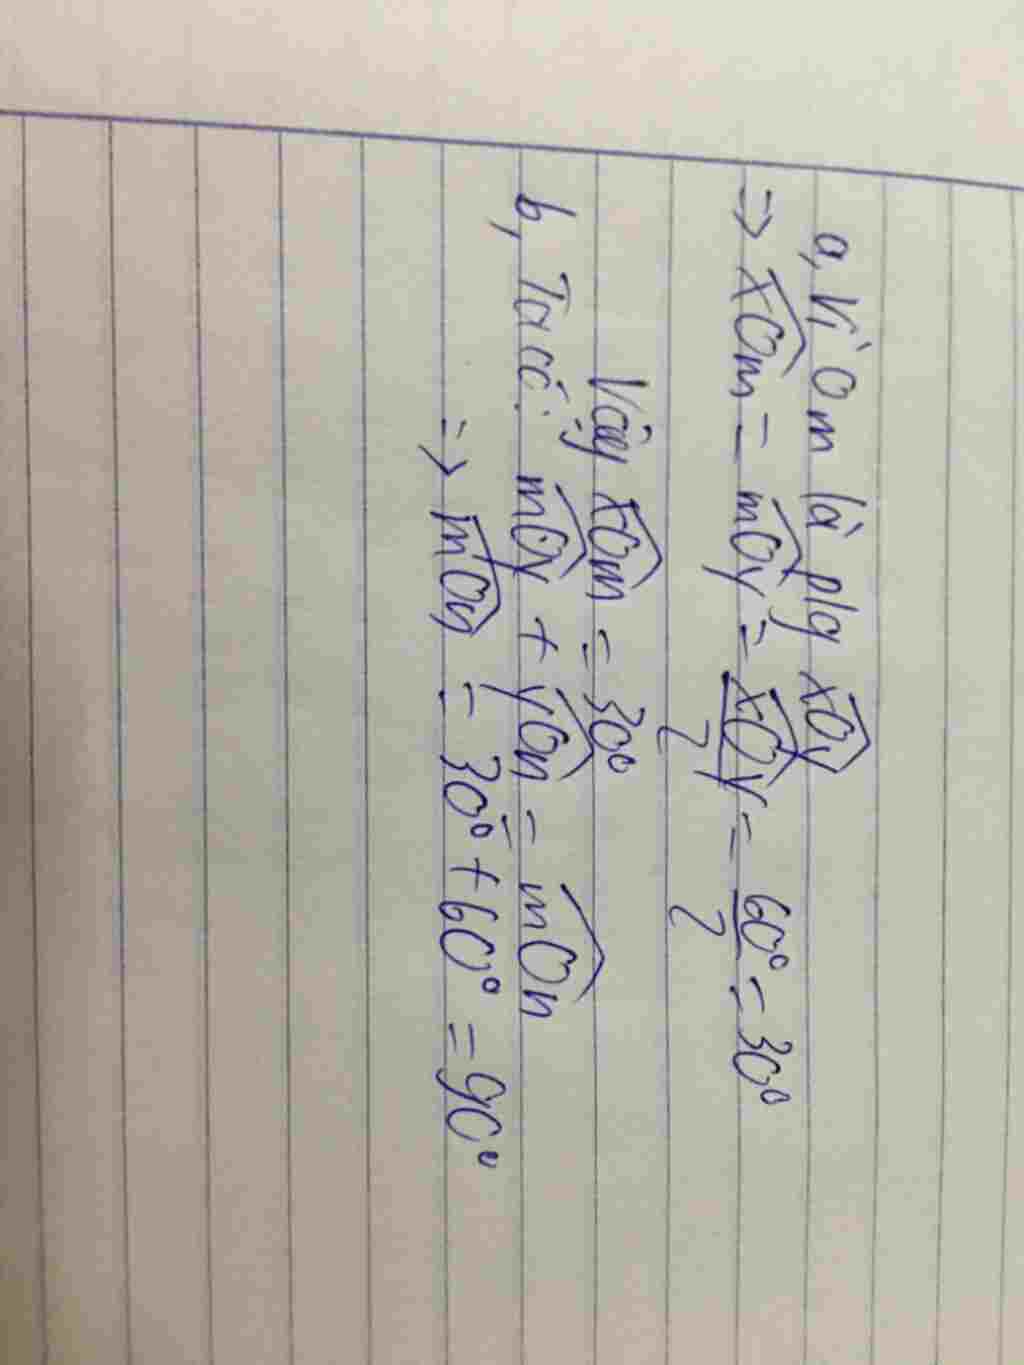 a, Vì Om là p/g xOy
=> xOm = mOy = xOy/2 = 60°/2 = 30°
Vậy xOm = 30°
b, Ta có: mOy + yOn = mOn
=> mOn = 30° + 60° = 90°